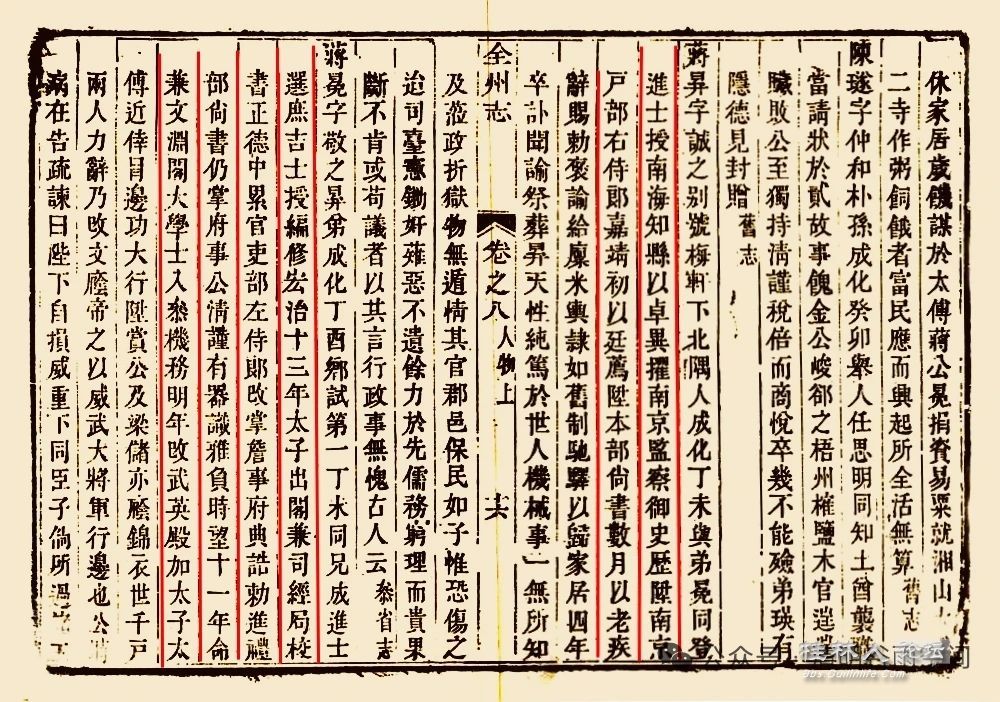 休家居歲饑謀於太傅蔣公冕捐資易粟就湘山
二寺作粥飼餓者富民應而興起所全活無算 舊志
陳璲字仲和朴孫成化癸卯舉人任思明同知土酋襲
當請狀於貳故事餽金公峻郤之梧州榷鹽木官
贓敗公至獨持淸謹稅倍而商悅卒幾不能殮弟瑛有
隱德見封贈 舊志
蔣昇字誠之别號梅軒下北隅人成化丁未與弟冕同登
進士授南海知縣以卓異擢南京監察御史歷陞南京
戸部右侍郎嘉靖初以廷薦陞本部尙書數月以老疾
辭賜勅褒諭給廩米輿隷如舊制馳驛以歸家居四年
卒訃聞諭祭葬昇天性純篤於世人機械事一無所知
全州志 卷之八 人物上 十六
及蒞政折獄物無遁情其官郡邑保民如子惟恐傷之
治司臺憲鋤奸薙惡不遺餘力於先儒務窮理而貴果
斷不肯或苟議者以其言行政事無愧古人云 叅省志
蔣冕字敬之昇弟成化丁酉鄉試第一丁未同兄成進士
選庶吉士授編修宏治十三年太子出閣兼司經局校
書正德中累官吏部左侍郎改掌詹事府典誥勅進禮
部尙書仍掌府事公淸謹有器識雅負時望十一年命
兼文淵閣大學士入叅機務明年改武英殿加太子太
傅近倖冒邊功大行陞賞公及梁儲亦廕錦衣世千戸
兩人力辭乃改文廕帝之以威武大將軍行邊也公
病在告疏諫曰陛下自損威重下同臣子倘所過
公众号
桂林人论坛